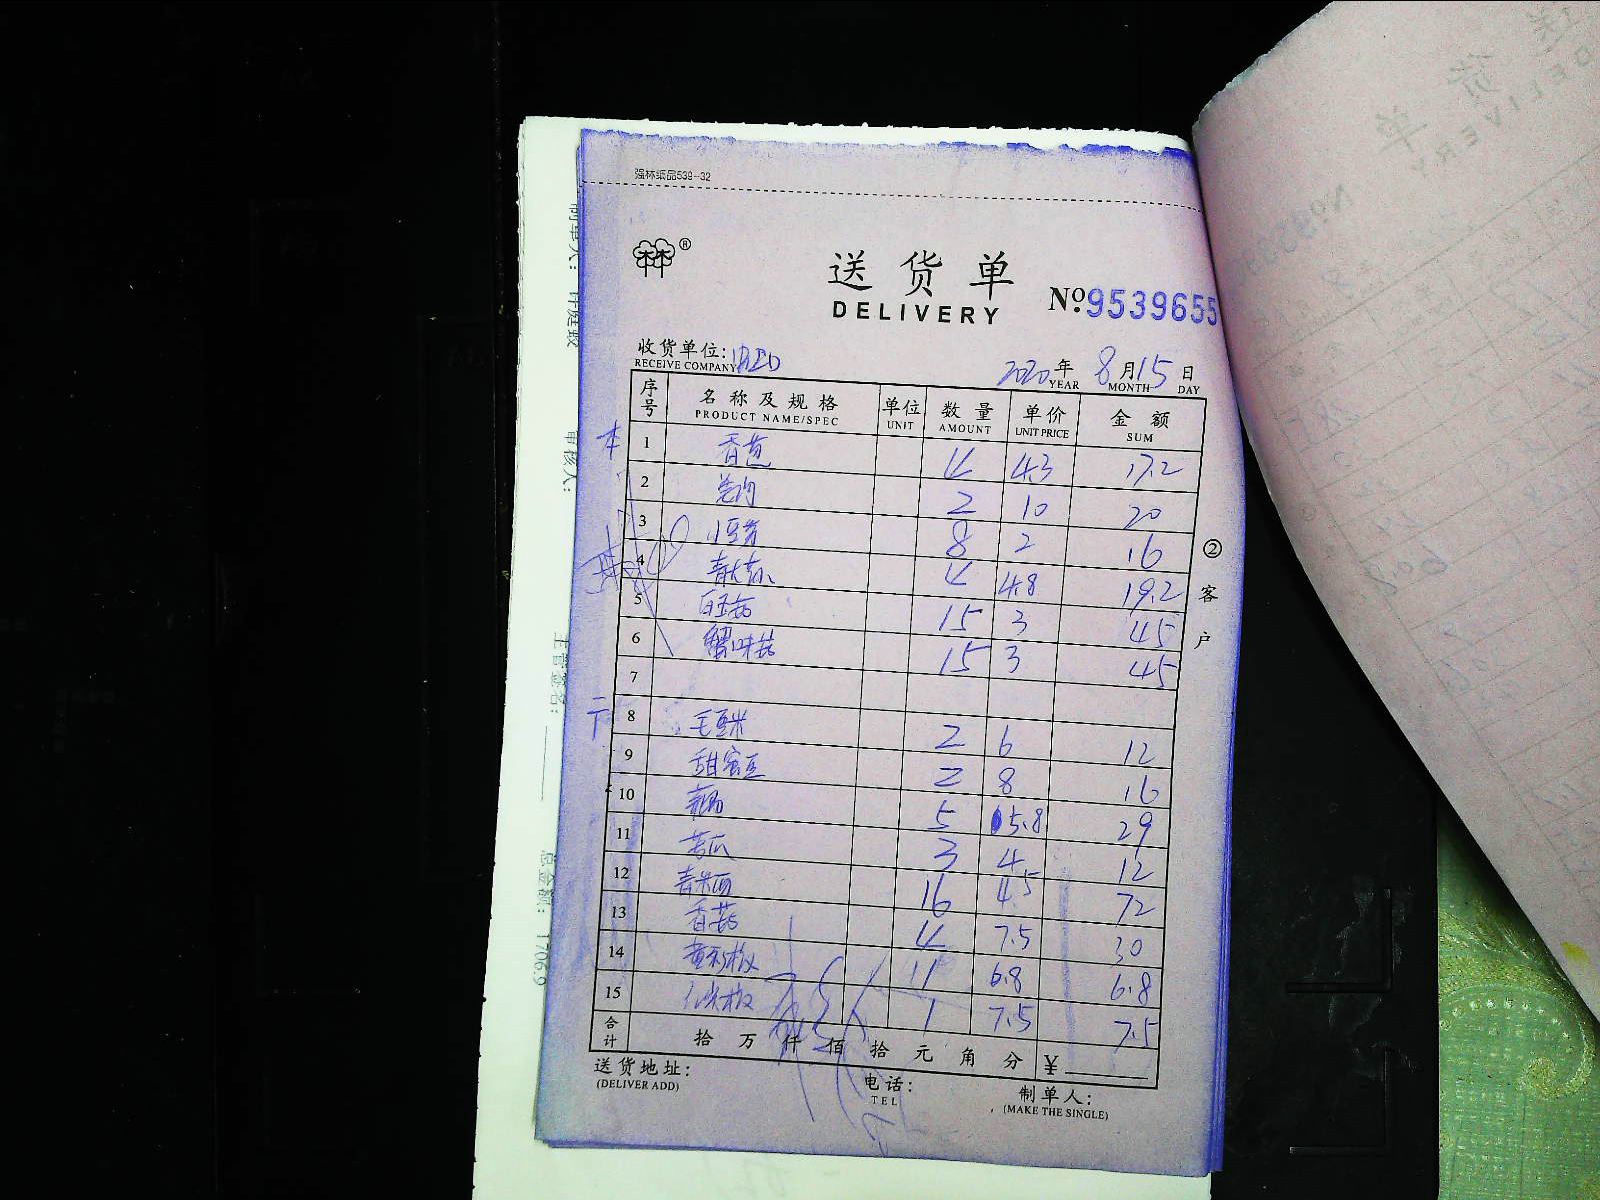 强林纸品539-32
送货单
DELIVERY
№:9539655
收货单位:
RECEIVE COMPANY
2020年 8月15日
YEAR MONTH DAY
序号 名称及规格 单位 数量 单价 金额
PRODUCT NAME/SPEC UNIT AMOUNT UNIT PRICE SUM
1 香葱 4 4.3 17.2
2 2 10 20
3 小豆芽 8 2 16
4 4 4.8 19.2
5 白玉菇 15 3 45
6 蟹味菇 15 3 45
7
8 毛豆米 2 6 12
9 甜蜜豆 2 8 16
10 5 5.8 29
11 苦瓜 3 4 12
12 16 4.5 72
13 香菇 4 7.5 30
14 黄彩椒 1 6.8 6.8
15 1 7.5 7.5
合计 拾 万 仟 佰 拾 元 角 分 ¥
送货地址:
(DELIVER ADD)
电话:
TEL
制单人:
(MAKE THE SINGLE)
②客户
审核人:
主管签名:
总金额: 1706.9